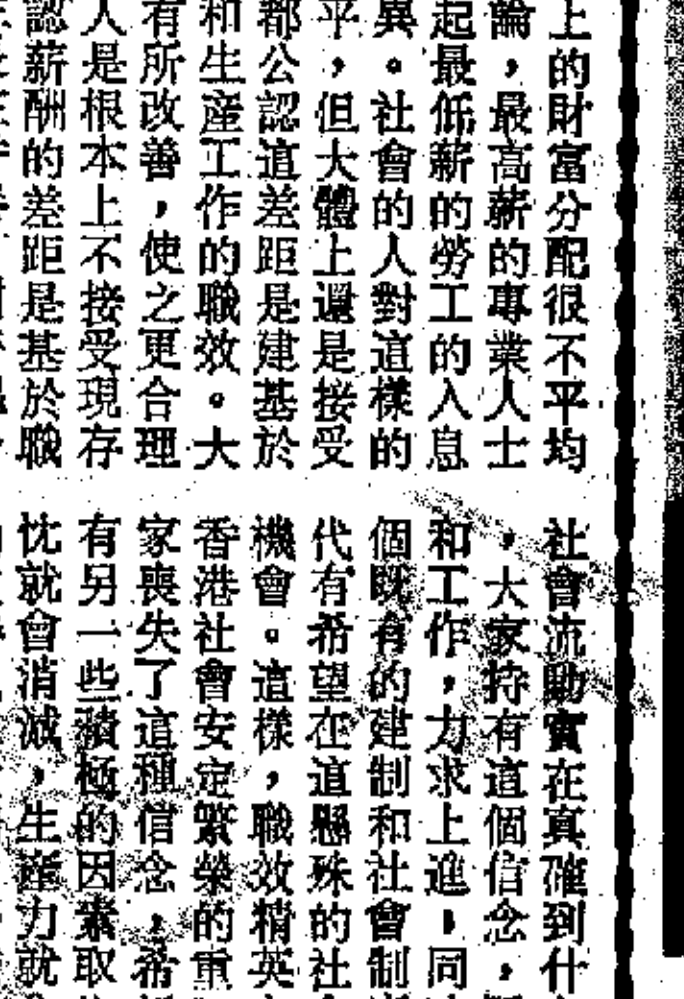 上的財富分配很不平均
論，最高薪的專業人士
起最低薪的勞工的入息
異。社會的人對這樣的
平，但大體上還是接受
都公認這差距是建基於
和生產工作的職效。大
有所改善，使之更合理
人是根本上不接受現存
認薪酬的差距是基於職
社會流動實在真確到什
，大家持有這個信念，
和工作，力求上進，同
個既有的建制和社會制
代有希望在這懸殊的社
機會。這樣，職效精英
香港社會安定繁榮的重
家喪失了這種信念，希
有另一些積極的因素取
忱就會消減，生產力就